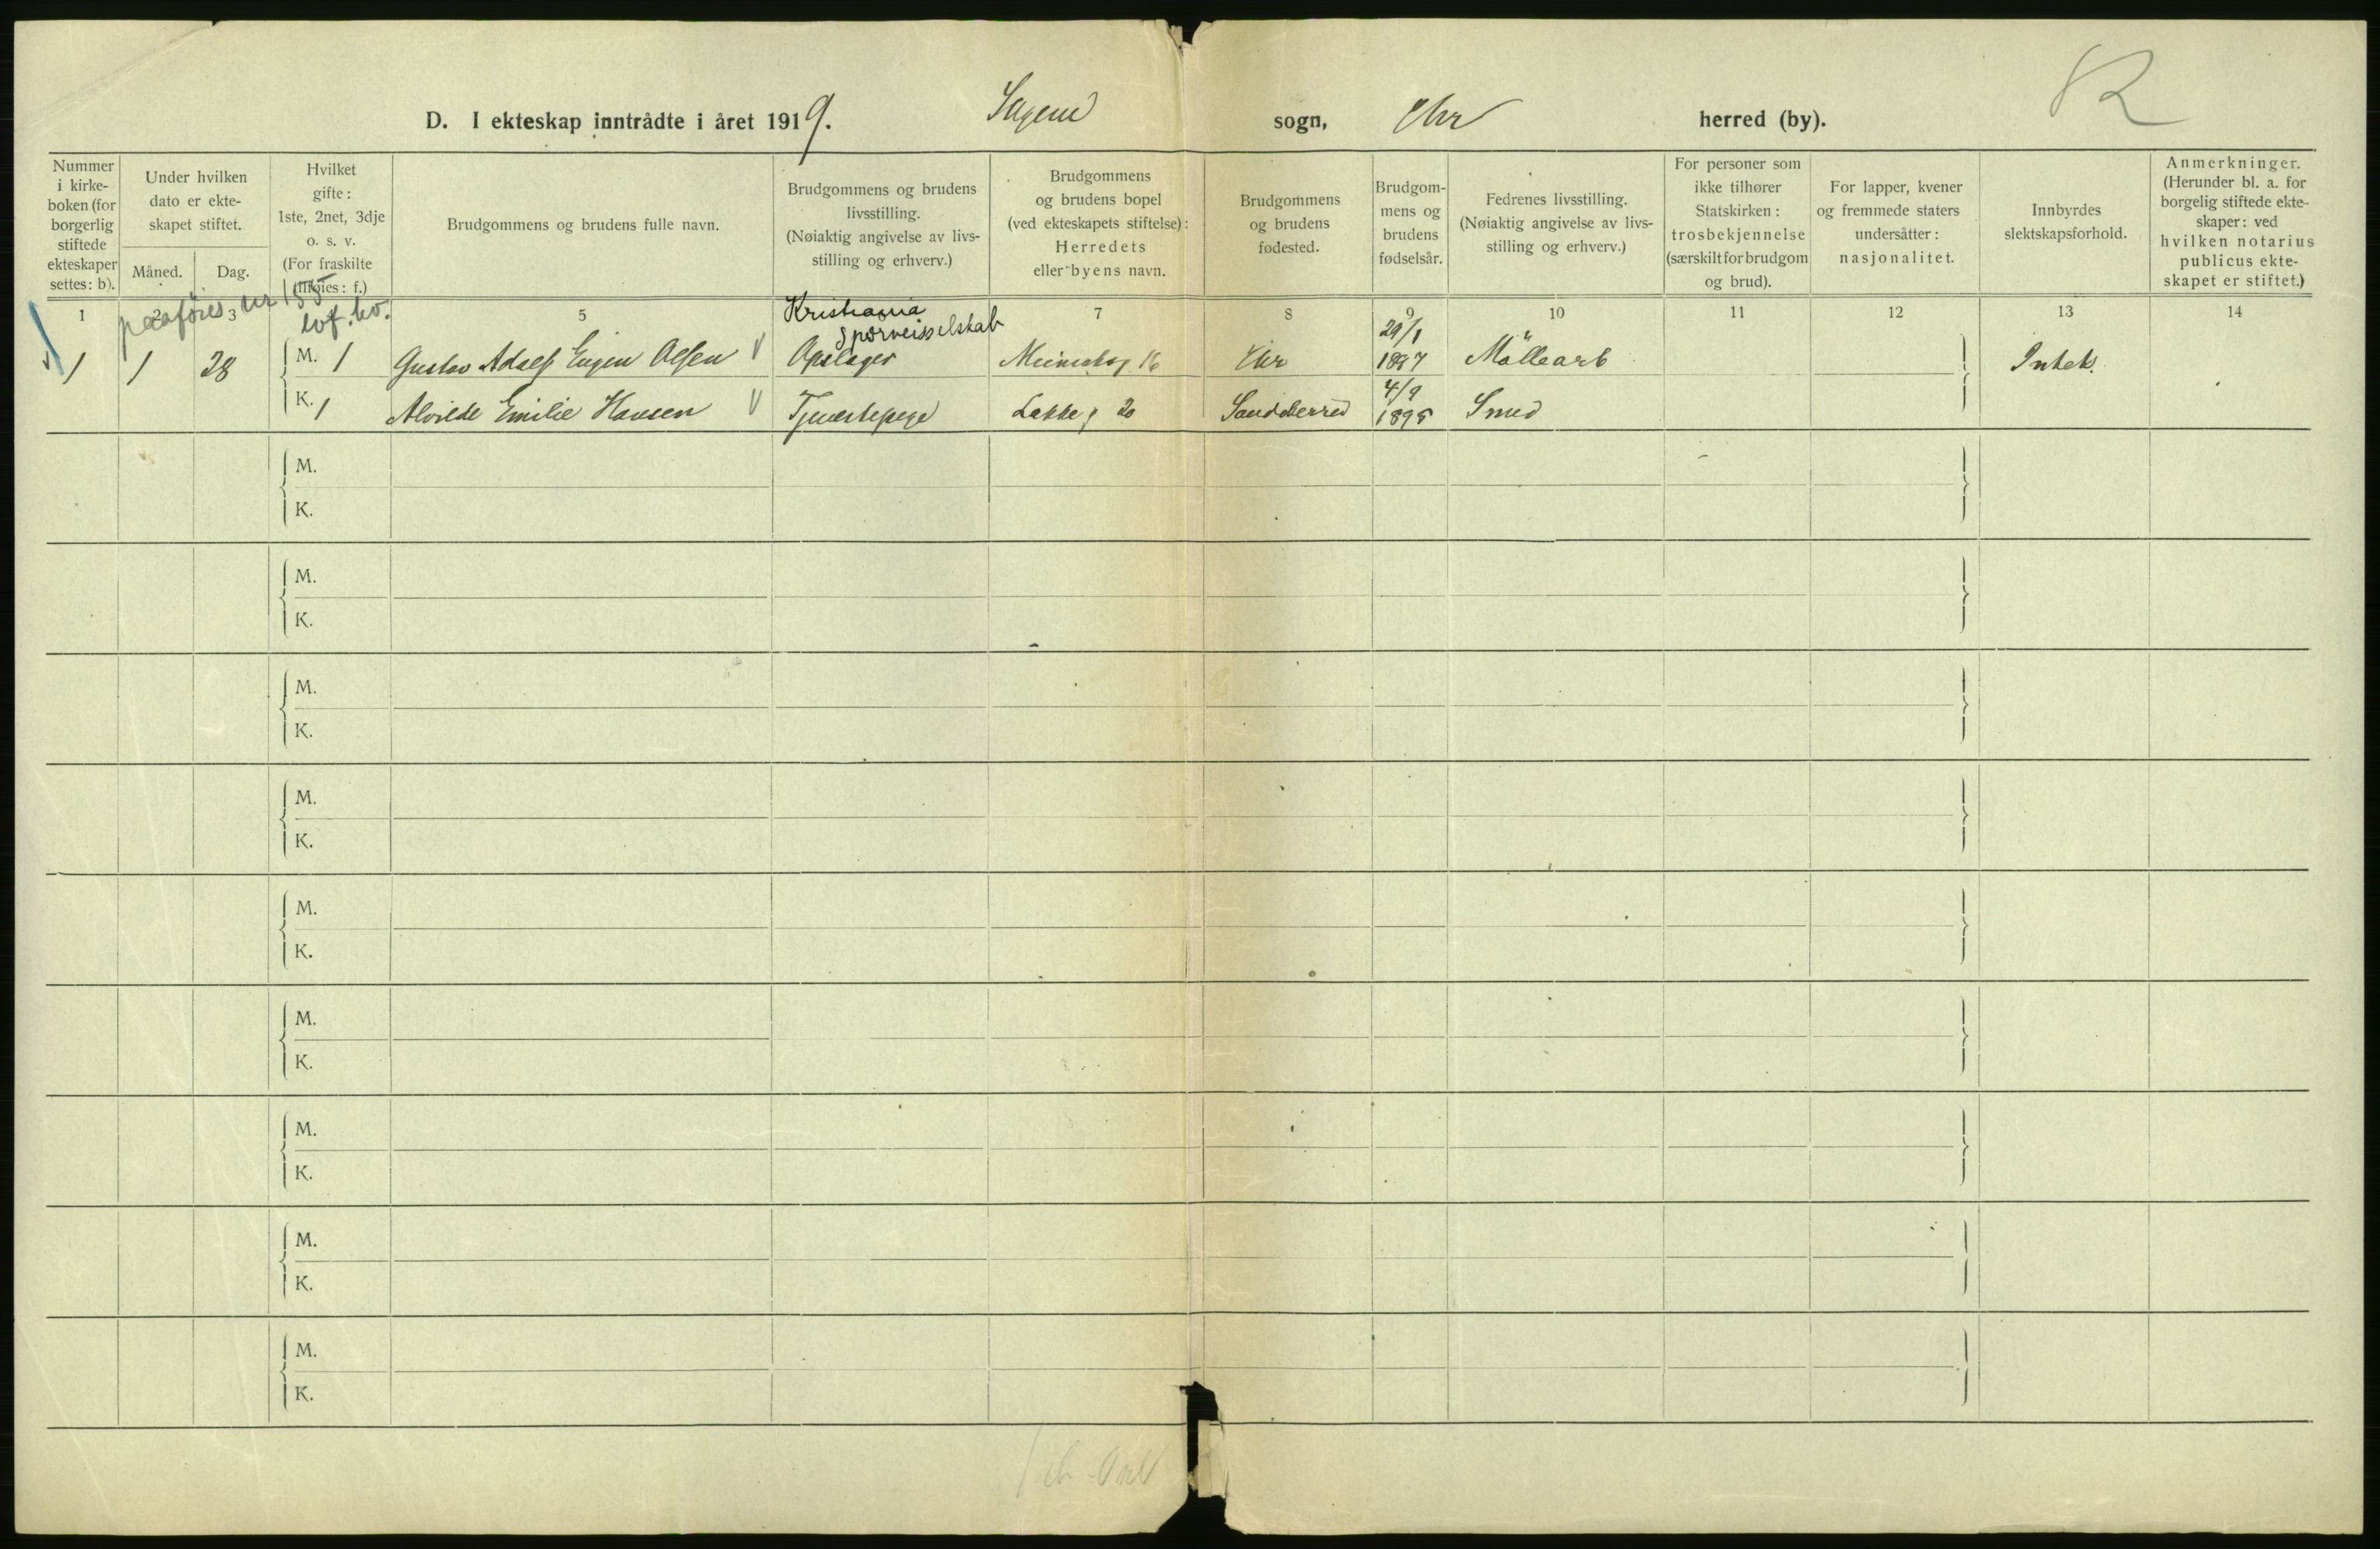 D. I ekteskap inntrådte i året 1919. Sagene sogn, Chr herred (by).
Nummer i kirkeboken (for borgerlig stiftede ekteskaper settes: b).
Under hvilken dato er ekteskapet stiftet.
Måned. Dag.
Hvilket gifte: 1ste, 2net, 3dje o. s. v. (For fraskilte tilføies: f.)
Brudgommens og brudens fulle navn.
Brudgommens og brudens livsstilling. (Nøiaktig angivelse av livsstilling og erhverv.)
Brudgommens og brudens bopel (ved ekteskapets stiftelse): Herredets eller byens navn.
Brudgommens og brudens fødested.
Brudgommens og brudens fødselsår.
Fedrenes livsstilling. (Nøiaktig angivelse av livsstilling og erhverv.)
For personer som ikke tilhører Statskirken: trosbekjennelse (særskilt for brudgom og brud).
For lapper, kvener og fremmede staters undersåtter: nasjonalitet.
Innbyrdes slektskapsforhold.
Anmerkninger. (Herunder bl. a. for borgelig stiftede ekteskaper: ved hvilken notarius publicus ekteskapet er stiftet.)
1 3 5 7 8 9 10 11 12 13 14
paaføres nr
Kristiania Sporveisselskab
1 1 28 M. 1 Gustav Adolf Eugen Olsen Opslager 16 Chr 29/1 1897 Møllearb Intet.
K. 1 Alvilde Emilie Hansen Tjenestepige Lakkeg 20 Sandeherred 4/9 1895 Smed
M.
K.
M.
K.
M.
K.
M.
K.
M.
K.
M.
K.
M.
K.
M.
K.
M.
K.